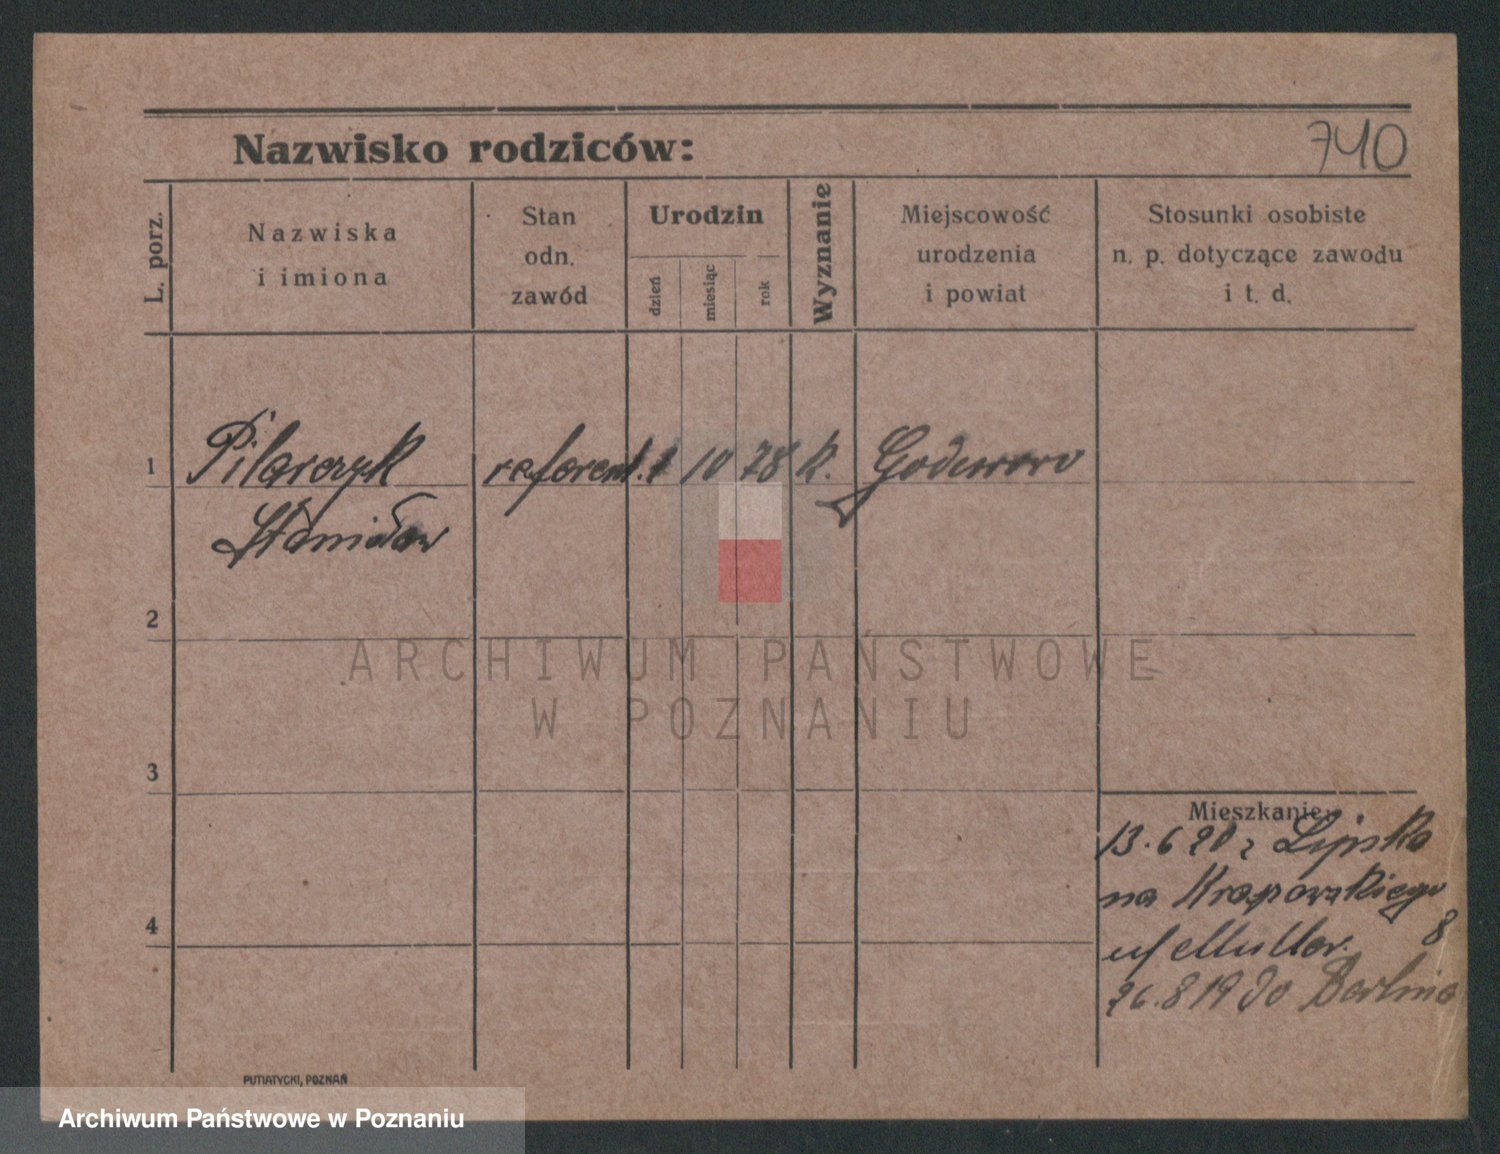 740
Nazwisko rodziców:
L. porz.
Nazwiska
i imiona
Stan
odn.
zawód
Urodzin
dzień
miesiąc
rok
Wyznanie
Miejscowość
urodzenia
i powiat
Stosunki osobiste
n. p. dotyczące zawodu
i t. d.
1 Pilarczyk referent. 1 10 78 k.
Stanisław
2
ARCHIWUM PAŃSTWOWE
W POZNANIU
3
Mieszkanie:
13.6 20 z Lipska
na
8
4
26.8 19 do Berlina
PUTIATYCKI, POZNAŃ
Archiwum Państwowe w Poznaniu